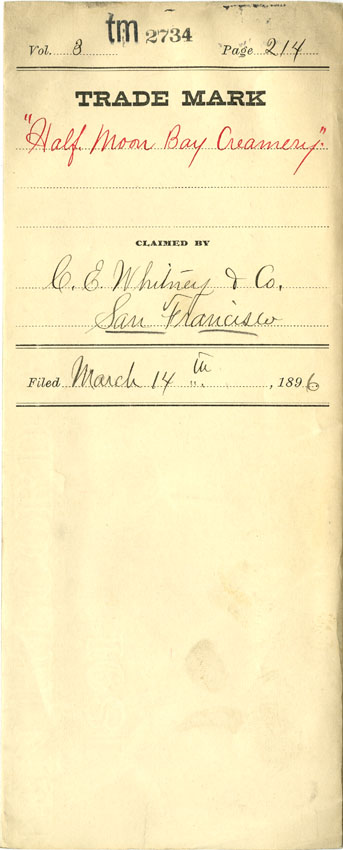 tm 2734
Vol. 3 Page 214
TRADE MARK
"Half Moon Bay Creamery"
CLAIMED BY
C. E. Whitney & Co.
San Francisco
Filed March 14th, 1896